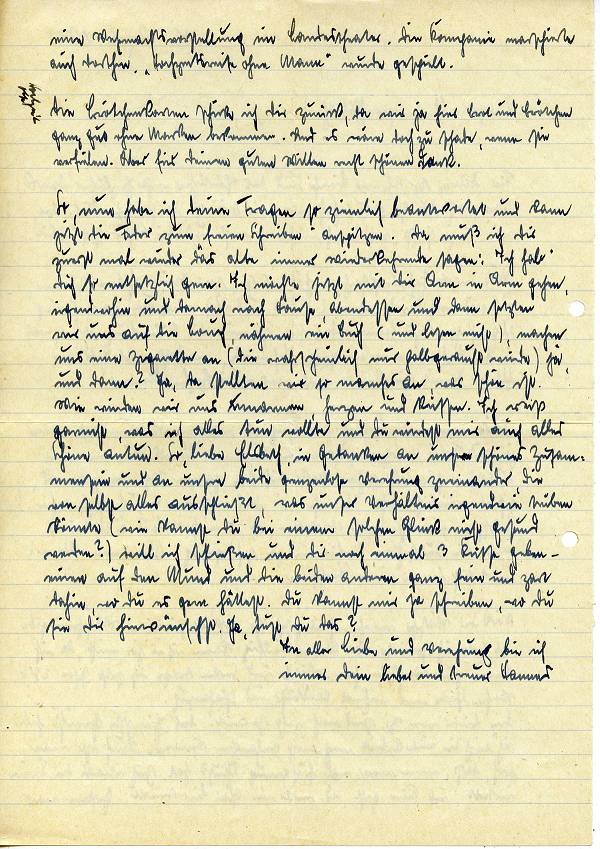 eine Wehrmachtsvorstellung im Landestheater. Die Kompanie marschierte
auch dorthin. „Hochzeitsreise ohne Mann" wurde gespielt.
Die Brötchenkarten schicke ich dir zurück, da wir ja hier Brot und Brötchen
ganz gut ohne Marken bekommen. Und es wäre doch zu schade, wenn sie
verfielen. Aber für deinen guten Willen recht schönen Dank.
So, nun habe ich deine Fragen so ziemlich beantwortet und kann
jetzt die Feder zum freien Schreiben anspitzen. Da muß ich dir
zuerst mal wieder das alte immer wiederkehrende sagen: „Ich hab"
dich so entsetzlich gern. Ich möchte jetzt mit dir Arm in Arm gehen,
irgendwohin und danach nach Hause, abendessen und dann setzten
wir uns auf die Couch, nähmen ein Buch (und lesen nicht), machen
uns eine Zigarette an (die wahrscheinlich nur halbgeraucht würde) ja,
und dann? Ja, da stellten wir so manches an, was schön ist.
Wie würden wir uns umarmen, herzen und küssen. Ich weiß
garnicht, was ich alles tun wollte und du würdest mir auch alles
Schöne antun. So, liebe Elsbeth, in Gedanken an unser schönes Zusam-
mensein und an unsere beide grenzenlose Verehrung zueinander, die
von selbst alles ausschließt, was unser Verhältnis irgendwie trüben
könnte (wie kannst du bei einem solchen Glück nicht gesund
werden?) will ich schließen und dir noch einmal 3 Küsse geben –
einen auf den Mund und die beiden anderen ganz fein und zart
dahin, wo du es gern hättest. Du kannst mir ja schreiben, wo du
sie dir hinwünschst. Ja, tust du das?
In aller Liebe und Verehrung bin ich
immer dein lieber und treuer Hannes